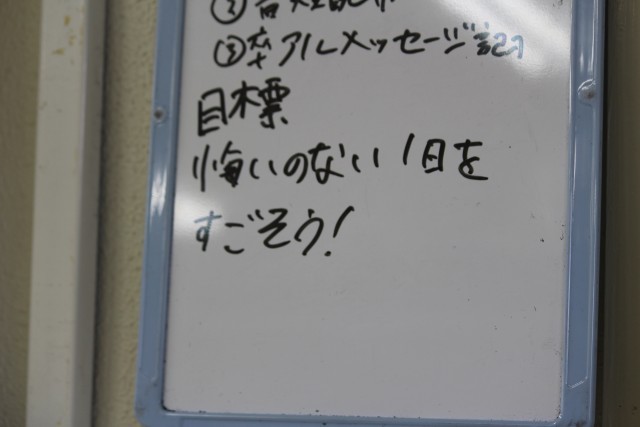 ③卒アルメッセージ記入
目標
悔いのない1日を
すごそう!